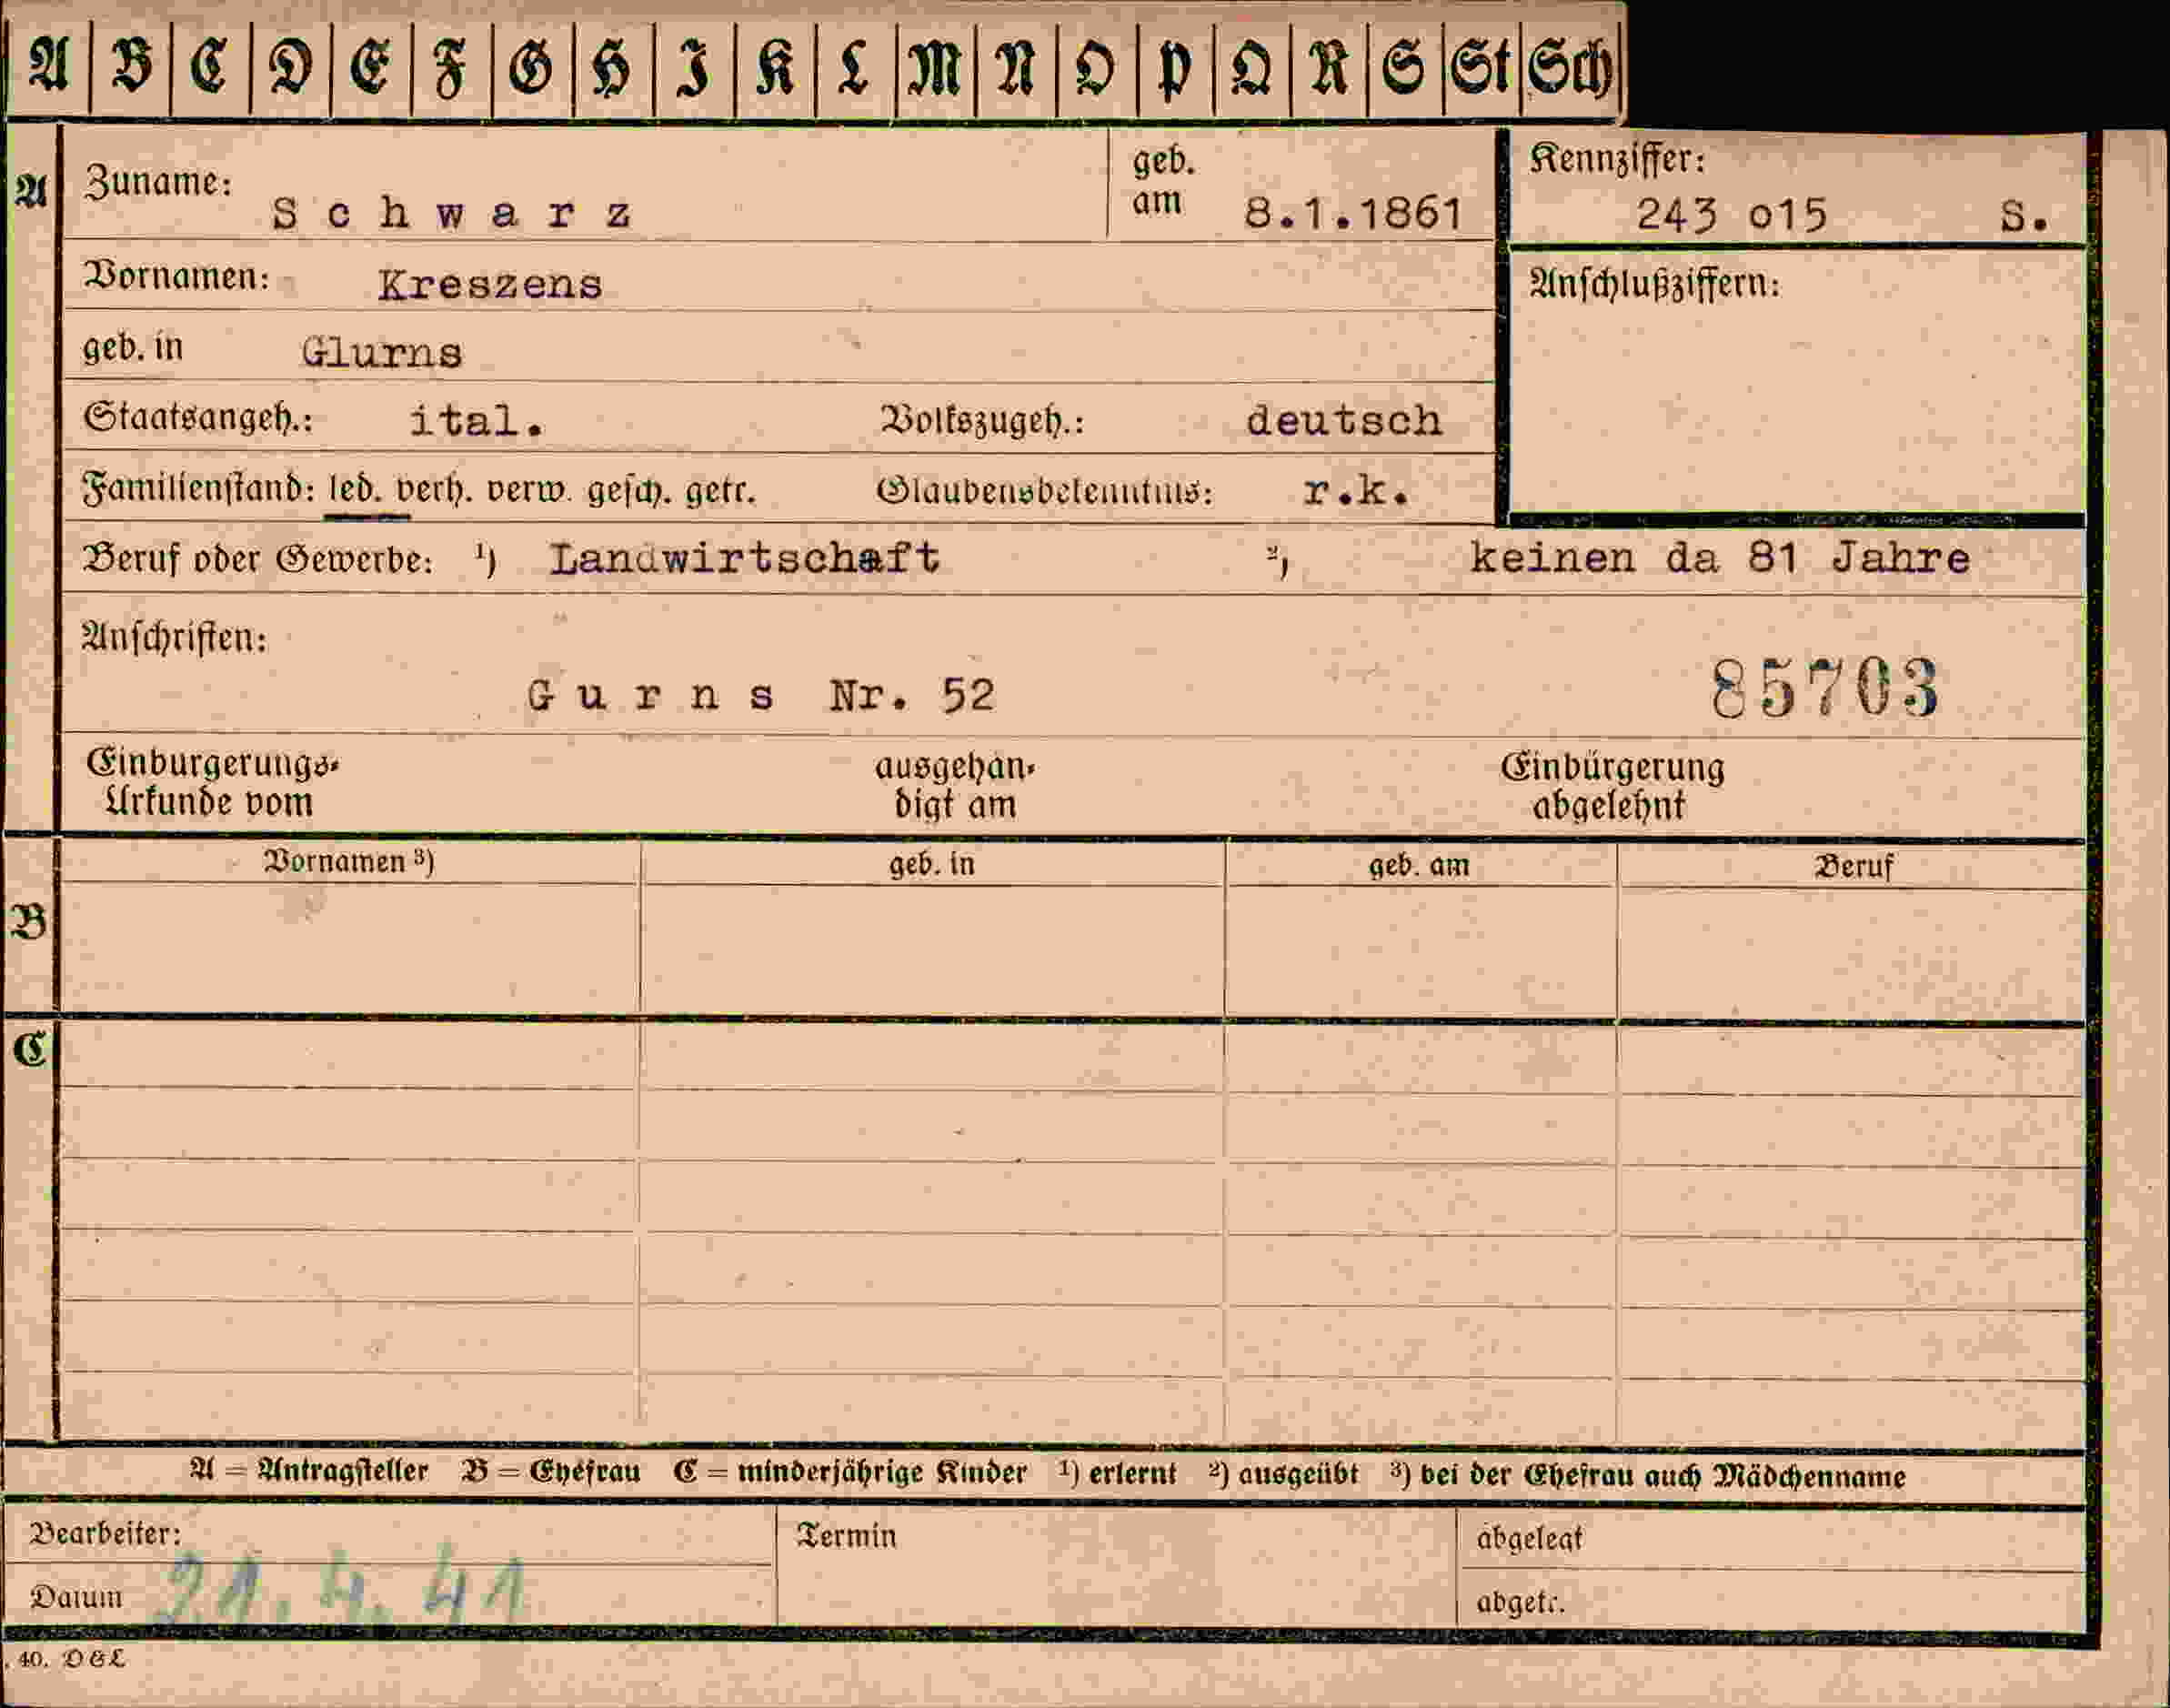 A B C D E F G H I K L M N O P Q R S St Sch
A Zuname: Schwarz geb. am 8.1.1861 Kennziffer: 243 o15 S.
Vornamen: Kreszens Anschlußziffern:
geb. in Glurns
Staatsangeh.: ital. Volkszugeh.: deutsch
Familienstand: led. verh. verw. gesch. getr. Glaubensbekenntnis: r.k.
Beruf oder Gewerbe: 1) Landwirtschaft 2) keinen da 81 Jahre
Anschriften:
Gurns Nr. 52 85703
Einbürgerungs- ausgehän- Einbürgerung
Urkunde vom digt am abgelehnt
Vornamen 3) geb. in geb. am Beruf
B
C
A = Antragsteller B = Ehefrau C = minderjährige Kinder 1) erlernt 2) ausgeübt 3) bei der Ehefrau auch Mädchenname
Bearbeiter: Termin abgelegt
Datum 21.4.41 abgetr.
. 40. D & L